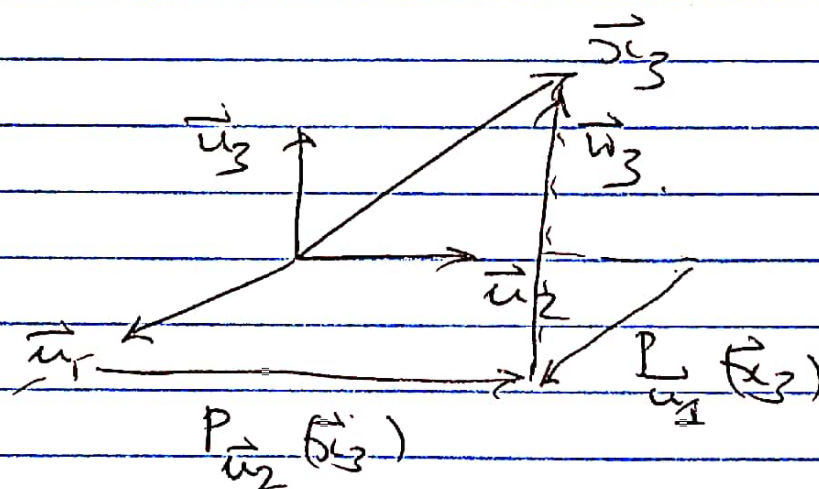 x⃗₃
u⃗₃
w⃗₃
u⃗₂
u⃗₁
P_u⃗₁ (x⃗₃)
P_u⃗₂ (x⃗₃)